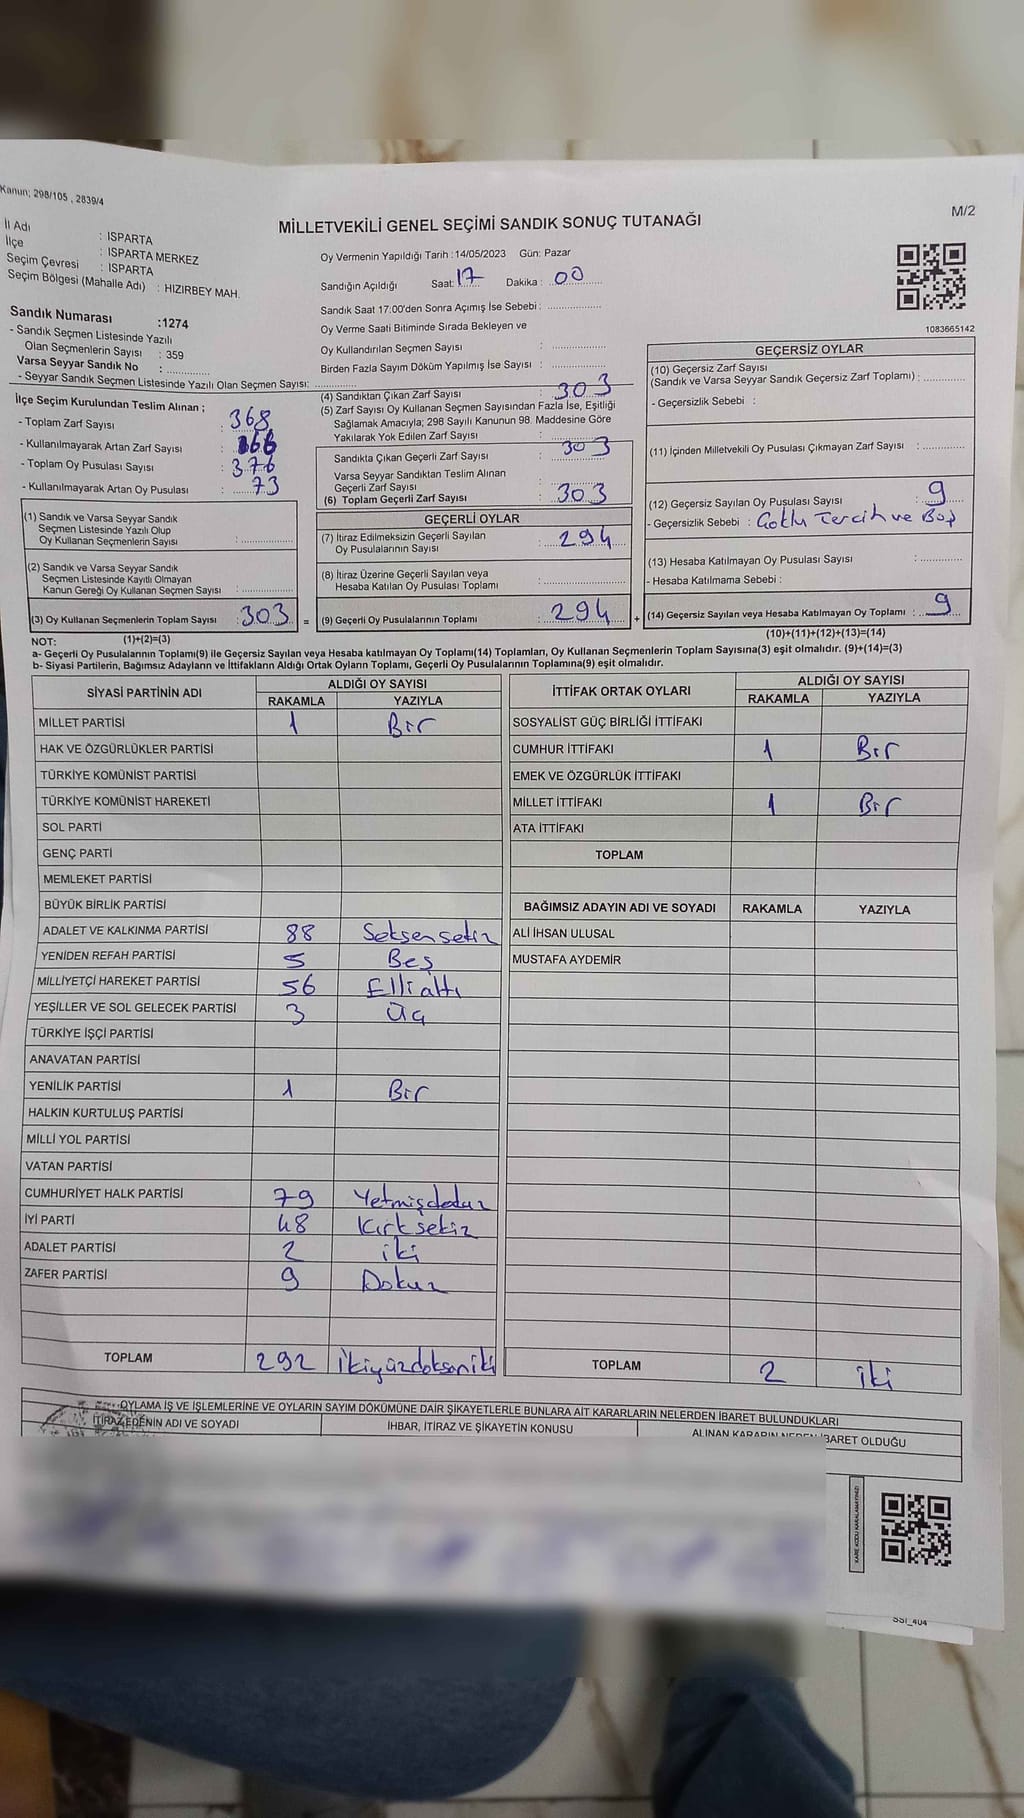 Kanun; 298/105 , 2839/4
M/2
MİLLETVEKİLİ GENEL SEÇİMİ SANDIK SONUÇ TUTANAĞI
İl Adı : ISPARTA
İlçe : ISPARTA MERKEZ
Seçim Çevresi : ISPARTA
Seçim Bölgesi (Mahalle Adı) : HIZIRBEY MAH.
Oy Vermenin Yapıldığı Tarih :14/05/2023 Gün: Pazar
Sandığın Açıldığı Saat: 17 Dakika : 00
Sandık Saat 17:00'den Sonra Açımış İse Sebebi :
Oy Verme Saati Bitiminde Sırada Bekleyen ve
Oy Kullandırılan Seçmen Sayısı :
Birden Fazla Sayım Döküm Yapılmış İse Sayısı :
1083665142
Sandık Numarası :1274
- Sandık Seçmen Listesinde Yazılı
Olan Seçmenlerin Sayısı : 359
Varsa Seyyar Sandık No :
- Seyyar Sandık Seçmen Listesinde Yazılı Olan Seçmen Sayısı:
İlçe Seçim Kurulundan Teslim Alınan ;
- Toplam Zarf Sayısı : 368
- Kullanılmayarak Artan Zarf Sayısı :
- Toplam Oy Pusulası Sayısı : 376
- Kullanılmayarak Artan Oy Pusulası : 73
(1) Sandık ve Varsa Seyyar Sandık
Seçmen Listesinde Yazılı Olup
Oy Kullanan Seçmenlerin Sayısı :
(2) Sandık ve Varsa Seyyar Sandık
Seçmen Listesinde Kayıtlı Olmayan
Kanun Gereği Oy Kullanan Seçmen Sayısı :
(3) Oy Kullanan Seçmenlerin Toplam Sayısı : 303 =
(1)+(2)=(3)
(4) Sandıktan Çıkan Zarf Sayısı : 303
(5) Zarf Sayısı Oy Kullanan Seçmen Sayısından Fazla İse, Eşitliği
Sağlamak Amacıyla; 298 Sayılı Kanunun 98. Maddesine Göre
Yakılarak Yok Edilen Zarf Sayısı :
Sandıkta Çıkan Geçerli Zarf Sayısı : 303
Varsa Seyyar Sandıktan Teslim Alınan
Geçerli Zarf Sayısı :
(6) Toplam Geçerli Zarf Sayısı : 303
GEÇERLİ OYLAR
(7) İtiraz Edilmeksizin Geçerli Sayılan
Oy Pusulalarının Sayısı : 294
(8) İtiraz Üzerine Geçerli Sayılan veya
Hesaba Katılan Oy Pusulası Toplamı :
(9) Geçerli Oy Pusulalarının Toplamı : 294 +
GEÇERSİZ OYLAR
(10) Geçersiz Zarf Sayısı
(Sandık ve Varsa Seyyar Sandık Geçersiz Zarf Toplamı) :
- Geçersizlik Sebebi :
(11) İçinden Milletvekili Oy Pusulası Çıkmayan Zarf Sayısı :
(12) Geçersiz Sayılan Oy Pusulası Sayısı : 9
- Geçersizlik Sebebi : Çoklu Tercih ve Boş
(13) Hesaba Katılmayan Oy Pusulası Sayısı :
- Hesaba Katılmama Sebebi :
(14) Geçersiz Sayılan veya Hesaba Katılmayan Oy Toplamı : 9
(10)+(11)+(12)+(13)=(14)
NOT:
a- Geçerli Oy Pusulalarının Toplamı(9) ile Geçersiz Sayılan veya Hesaba katılmayan Oy Toplamı(14) Toplamları, Oy Kullanan Seçmenlerin Toplam Sayısına(3) eşit olmalıdır. (9)+(14)=(3)
b- Siyasi Partilerin, Bağımsız Adayların ve İttifakların Aldığı Ortak Oyların Toplamı, Geçerli Oy Pusulalarının Toplamına(9) eşit olmalıdır.
SİYASİ PARTİNİN ADI ALDIĞI OY SAYISI
RAKAMLA YAZIYLA
MİLLET PARTİSİ 1 Bir
HAK VE ÖZGÜRLÜKLER PARTİSİ
TÜRKİYE KOMÜNİST PARTİSİ
TÜRKİYE KOMÜNİST HAREKETİ
SOL PARTİ
GENÇ PARTİ
MEMLEKET PARTİSİ
BÜYÜK BİRLİK PARTİSİ
ADALET VE KALKINMA PARTİSİ 88 Seksensekiz
YENİDEN REFAH PARTİSİ 5 Beş
MİLLİYETÇİ HAREKET PARTİSİ 56 Elli altı
YEŞİLLER VE SOL GELECEK PARTİSİ 3 Üç
TÜRKİYE İŞÇİ PARTİSİ
ANAVATAN PARTİSİ
YENİLİK PARTİSİ 1 Bir
HALKIN KURTULUŞ PARTİSİ
MİLLİ YOL PARTİSİ
VATAN PARTİSİ
CUMHURİYET HALK PARTİSİ 79 Yetmişdokuz
İYİ PARTİ 48 Kırksekiz
ADALET PARTİSİ 2 iki
ZAFER PARTİSİ 9 Dokuz
TOPLAM 292 İkiyüzdoksaniki
İTTİFAK ORTAK OYLARI ALDIĞI OY SAYISI
RAKAMLA YAZIYLA
SOSYALİST GÜÇ BİRLİĞİ İTTİFAKI
CUMHUR İTTİFAKI 1 Bir
EMEK VE ÖZGÜRLÜK İTTİFAKI
MİLLET İTTİFAKI 1 Bir
ATA İTTİFAKI
TOPLAM
BAĞIMSIZ ADAYIN ADI VE SOYADI RAKAMLA YAZIYLA
ALİ İHSAN ULUSAL
MUSTAFA AYDEMİR
TOPLAM 2 iki
OYLAMA İŞ VE İŞLEMLERİNE VE OYLARIN SAYIM DÖKÜMÜNE DAİR ŞİKAYETLERLE BUNLARA AİT KARARLARIN NELERDEN İBARET BULUNDUKLARI
İTİRAZ EDENİN ADI VE SOYADI İHBAR, İTİRAZ VE ŞİKAYETİN KONUSU ALINAN KARARIN NEDEN İBARET OLDUĞU
KARE KODU KARALAMAYINIZ!
SSİ_404